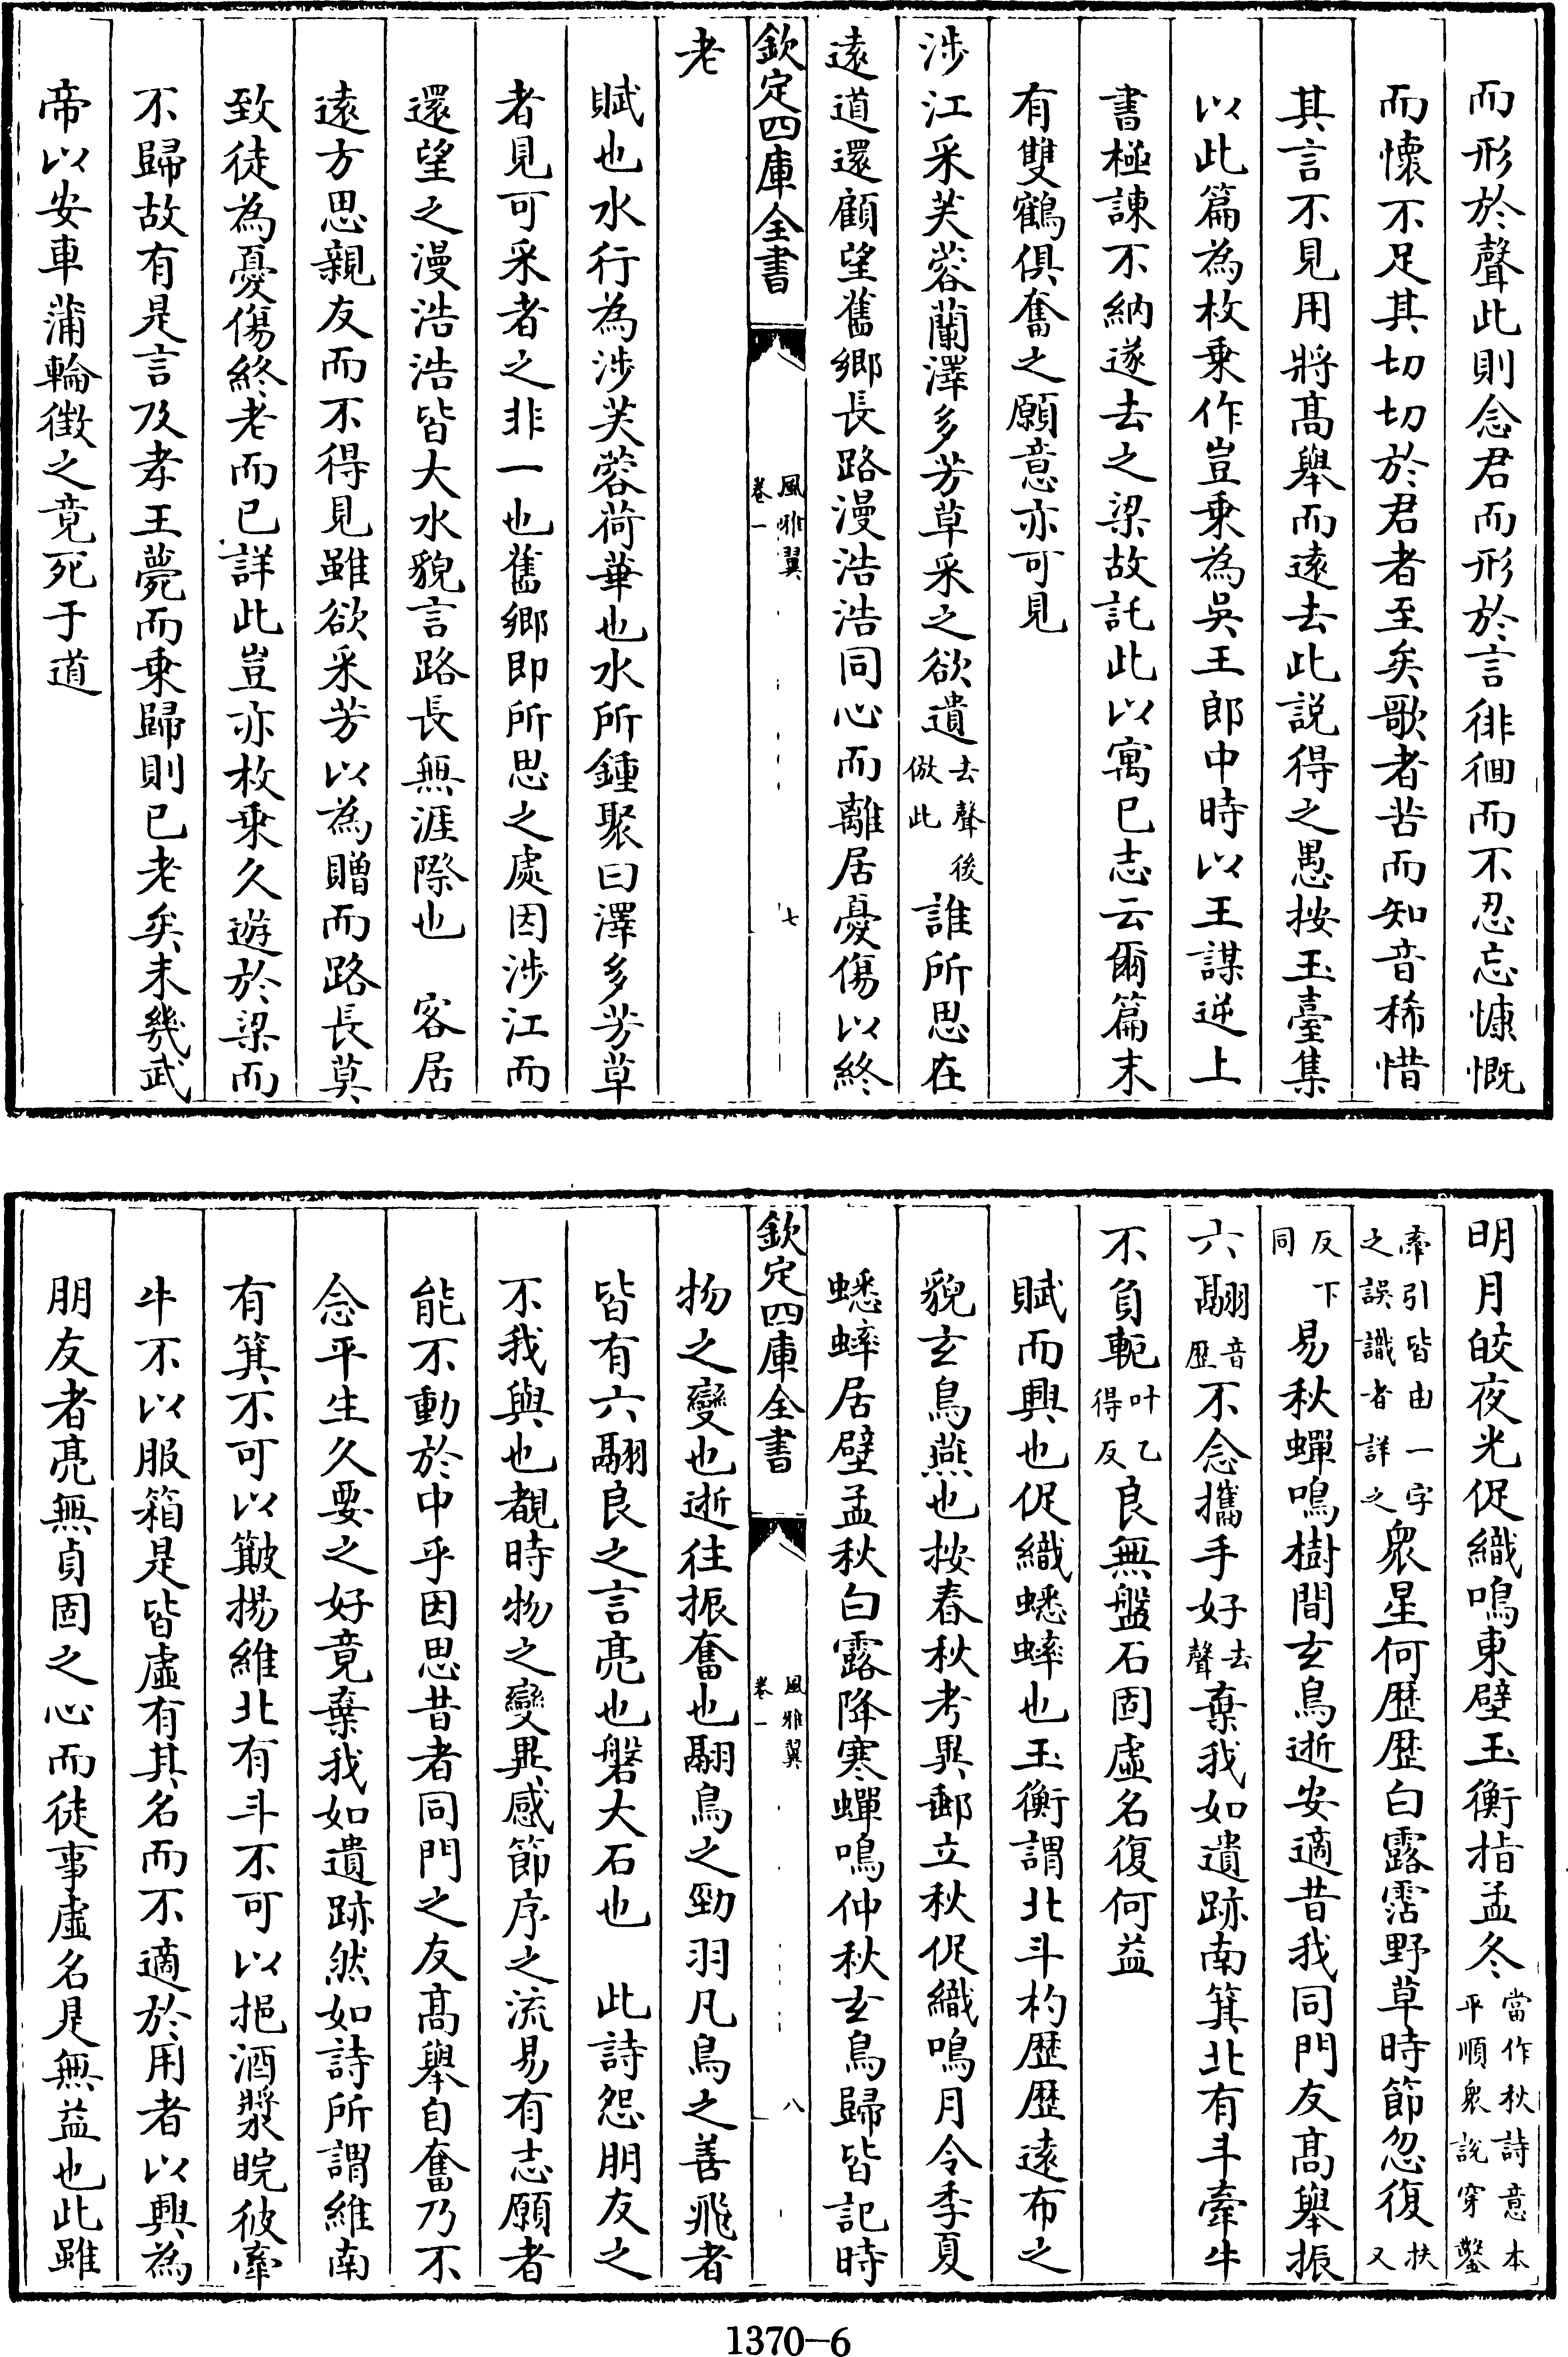 而形於聲此則念君而形於言徘徊而不忍忘慷慨
而懷不足其切切於君者至矣歌者苦而知音稀惜
其言不見用將髙舉而逺去此説得之愚按玉臺集
以此篇為枚乗作豈乗為吳王郎中時以王謀逆上
書極諫不納遂去之梁故託此以寓已志云爾篇末
有雙鶴俱奮之願意亦可見
涉江采芙蓉蘭澤多芳草采之欲遺去聲後倣此誰所思在
逺道還顧望舊鄉長路漫浩浩同心而離居憂傷以終
欽定四庫全書
風雅翼
卷一
七
老
賦也水行為涉芙蓉荷華也水所鍾聚曰澤多芳草
者見可采者之非一也舊鄉即所思之處因涉江而
還望之漫浩浩皆大水貌言路長無涯際也　客居
逺方思親友而不得見雖欲采芳以為贈而路長莫
致徒為憂傷終老而已詳此豈亦枚乗久遊於梁而
不歸故有是言及孝王薨而乗歸則已老矣未幾武
帝以安車蒲輪徴之竟死于道
明月皎夜光促織鳴東壁玉衡指孟冬當作秋詩意本平順衆說穿鑿
牽引皆由一字之誤識者詳之衆星何歴歴白露霑野草時節忽復扶又
反下同易秋蟬鳴樹間玄鳥逝安適昔我同門友髙舉振
六翮音歴不念攜手好去聲棄我如遺跡南箕北有斗牽牛
不負軛叶乙得反良無盤石固虚名復何益
賦而興也促織蟋蟀也玉衡謂北斗杓歴歴逺布之
貌玄鳥燕也按春秋考異郵立秋促織鳴月令季夏
蟋蟀居壁孟秋白露降寒蟬鳴仲秋玄鳥歸皆記時
欽定四庫全書
風雅翼
卷一
八
物之變也逝往振奮也翮鳥之勁羽凡鳥之善飛者
皆有六翮良之言亮也磐大石也　此詩怨朋友之
不我與也覩時物之變異感節序之流易有志願者
能不動於中乎因思昔者同門之友髙舉自奮乃不
念平生久要之好竟棄我如遺跡然如詩所謂維南
有箕不可以簸揚維北有斗不可以挹酒漿睆彼牽
牛不以服箱是皆虚有其名而不適於用者以興為
朋友者亮無貞固之心而徒事虚名是無益也此雖
1370-6